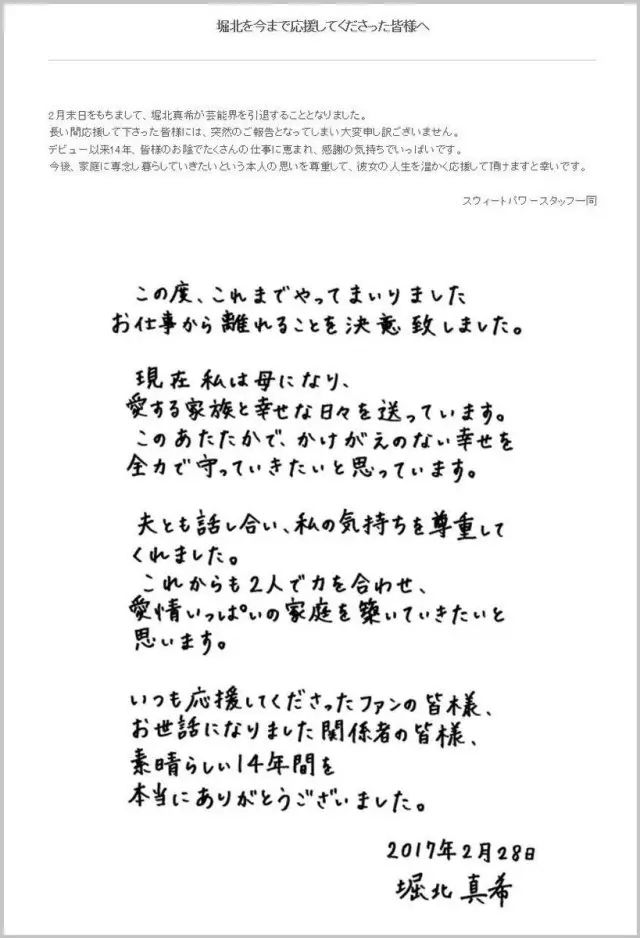 堀北を今まで応援してくださった皆様へ
2月末日をもちまして、堀北真希が芸能界を引退することとなりました。
長い間応援して下さった皆様には、突然のご報告となってしまい大変申し訳ございません。
デビュー以来14年、皆様のお陰でたくさんの仕事に恵まれ、感謝の気持ちでいっぱいです。
今後、家庭に専念し暮らしていきたいという本人の思いを尊重して、彼女の人生を温かく応援して頂けますと幸いです。
スウィートパワースタッフ一同
この度、これまでやってまいりました
お仕事から離れることを決意致しました。
現在私は母になり、
愛する家族と幸せな日々を送っています。
このあたたかで、かけがえのない幸せを
全力で守っていきたいと思っています。
夫とも話し合い、私の気持ちを尊重して
くれました。
これからも2人で力を合わせ、
愛情いっぱいの家庭を築いていきたいと
思います。
いつも応援してくださったファンの皆様、
お世話になりました関係者の皆様、
素晴らしい14年間を
本当にありがとうございました。
2017年2月28日
堀北真希